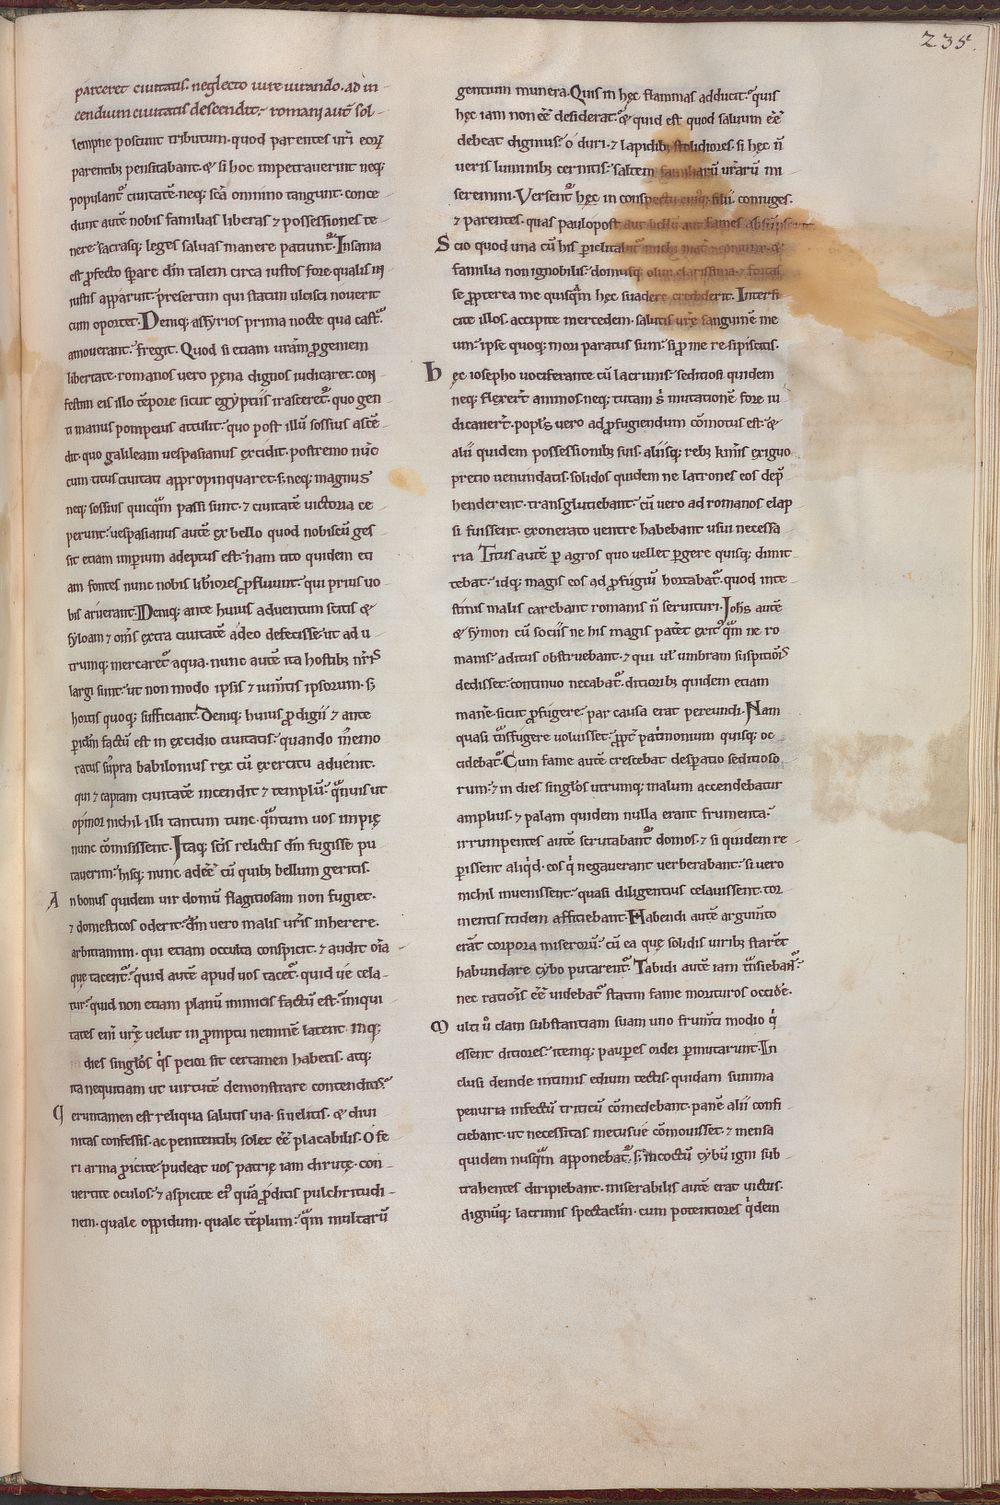 235.
parceret ciuitati. neglecto iure iurando. ad in-
cendium ciuitatis descendit. romani aut̄ sol-
lempne poscunt tributum. quod parentes ur̄i eoꝝ
parentib; pensitabant. & si hoc impetrauerint neq;
populant᷑ ciuitatē. neq; sc̄a omnino tangunt. conce-
dunt autē nobis familias liberas ⁊ possessiones te-
nere. sacrasq; leges saluas manere patiunt᷑. Insania
est ꝓfecto sꝑare dm̄ talem circa iustos fore. qualis in
iustis apparuit. presertim qui statim ulcisci nouerit
cum oportet. Deniq; assyrios prima nocte qua cast᷑
amouerant. fregit. Quod si etiam ur̄am ꝓgeniem
libertate. romanos uero pęna dignos iudicaret. con-
festim eis illo tēpore sicut egyptiis irasceret᷑. quo gen-
ti manus pompeius attulit. quo post illū sossius ascē-
dit. quo galileam uespasianus excidit. postremo nūc
cum titus ciuitati appropinquaret. s; neq; magnus
neq; sossius quicq̄m passi sunt. & ciuitatē uictoria ce-
perunt. uespasianus autē ex bello quod nobiscū ges-
sit etiam imꝑium adeptus est. nam tito quidem eti-
am fontes nunc nobis libiores ꝓfluunt. qui prius uo-
bis aruerant. Deniq; ante huius aduentum scitis &
syloam ⁊ om̄s extra ciuitatē adeo defecisse. ut ad u-
trumq; mercaret᷑ aqua. nunc autē ita hostib; nr̄is
largi sunt. ut non modo ipsis ⁊ ium̄tis ipsorum. s;
hortis quoq; sufficiant. Deniq; huius ꝓdigii ⁊ ante
ꝑidm̄ factū est in excidio ciuitatis. quando m̄emo
ratus sup̄ra babilonius rex cū exercitu aduenit.
qui ⁊ captam ciuitatē incendit ⁊ templū. q̄nuis ut
opinor nichil illi tantum tunc. q̄ntum uos impię
nunc cōmisissent. Itaq; sc̄is relictis dm̄ fugisse pu-
tauerim. hisq; nunc adeē cū quib; bellum geritis.
An bonus quidem uir domū flagitiosam non fugiet.
⁊ domesticos oderit. dm̄ uero malis ur̄is inherere
arbitramini. qui etiam occulta conspicit. ⁊ audit oīa
quę tacent᷑. quid autē apud uos tacet᷑. quid uę cela-
tur. quid non etiam planū inimicis factū est. iniqui-
tates em̄ ur̄ę uelut in promptu neminē latent. Inq;
dies singlo᷑s q̇s peior sit certamen habetis. atq;
ita nequitiam ut uirtutē demonstrare contenditis.
Ueruntamen est reliqua salutis uia. si uelitis. & diui-
nitas confessis. ac penitentib; solet eē placabilis. O fe-
ri arma ꝓicite. pudeat uos patrię iam dirutę. con-
uertite oculos. ⁊ aspicite ei᷑ quā ꝓditis pulchritudi-
nem. quale oppidum. quale tēplum. q̄m multarū
gentium munera. Quis in hęc flammas adducit. quis
hęc iam non eē desiderat. & quid est quod saluum eē
debeat dignius. o duri. ⁊ lapidib; stolidiores. si hęc n̄
ueris luminib; cernitis. saltem familiarū ur̄arū mi-
seremini. Versent᷑ hęc in conspectu cuiq; filii. coniuges.
⁊ parentes. quas paulopost aut bellū aut fames
Scio quod una cū his periclitabit᷑ michi mat̄ ⁊ coniunx. &
familia non ignobilis. domusq; olim clarissima. ⁊ fortas-
se ꝓpterea me quisq̄m hęc suadere crediderit. Interfi-
cite illos. accipite mercedem salutis ur̄ę sanguinē me-
um. ipse quoq; mori paratus sum. si ꝓ me resipiscitis.
Hęc iosepho uociferante cū lacrimis. seditiosi quidem
neq; flexer̄t animos. neq; tutam s̄ mutationē fore iu-
dicauer̄t. popl᷑s uero ad ꝓfugiendum cōmotus est. &
alii quidem possessionib; suis. aliisq; reb; kmis exiguo
precio uenundatis. solidos quidem ne latrones eos dep̄-
henderent. transglutiebant. cū uero ad romanos elap-
si fuissent. exonerato uentre habebant usui necessa-
ria. Titus autē ꝑ agros quo uellet ꝑgere quisq; dimit-
tebat. idq; magis eos ad ꝓfugiū hortabat᷑. quod inte-
stinis malis carebant romanis n̄ seruituri. Iohs autē
& symon cū sociis ne his magis patēt exit᷑ q̄m ne ro-
manis. aditus obstruebant. ⁊ qui ul̄ umbram suspitiōis
dedisset. continuo necabat᷑. ditiorib; quidem etiam
manē. sicut ꝓfugere. par causa erat pereundi. Nam
quasi tn̄sfugere uoluisset. ꝓpt̄ patrimonium quisq; oc-
cidebat᷑. Cum fame autē crescebat desꝑatio seditioso-
rum. ⁊ in dies singlo᷑s utrumq; malum accendebatur
amplius. ⁊ palam quidem nulla erant frumenta.
irrumpentes autē scrutabant᷑ domos. ⁊ si quidem re-
ꝑissent aliq̇d. eos q̇ negauerant uerberabant. si uero
nichil inuenissent. quasi diligentius celauissent. tor-
mentis itidem afficiebant. Habendi autē argum̄to
erāt corpora miserorū. cū ea quę solidis uirib; starēt
habundare cybo putarent᷑. Tabidi autē iam tn̄sfiebant᷑.
nec ratiōis eē uidebat᷑ statim fame morituros occidēre.
Multi u᷑ clam substantiam suam uno frum̄ti modio q̇
essent ditiores. itemq; pauꝑes ordei ꝑmutarunt. In-
clusi deinde intimis edium tectis. quidam summa
penuria infectū triticū cōmedebant. panē alii confi-
ciebant. ut necessitas metusue cōmouisset. ⁊ mensa
quidem nusq̄m apponebat᷑. s; incoctū cybū igni sub-
trahentes diripiebant. miserabilis autē erat uictus.
dignūq; lacrimis spectaclm̄. cum potentiores q̇dem